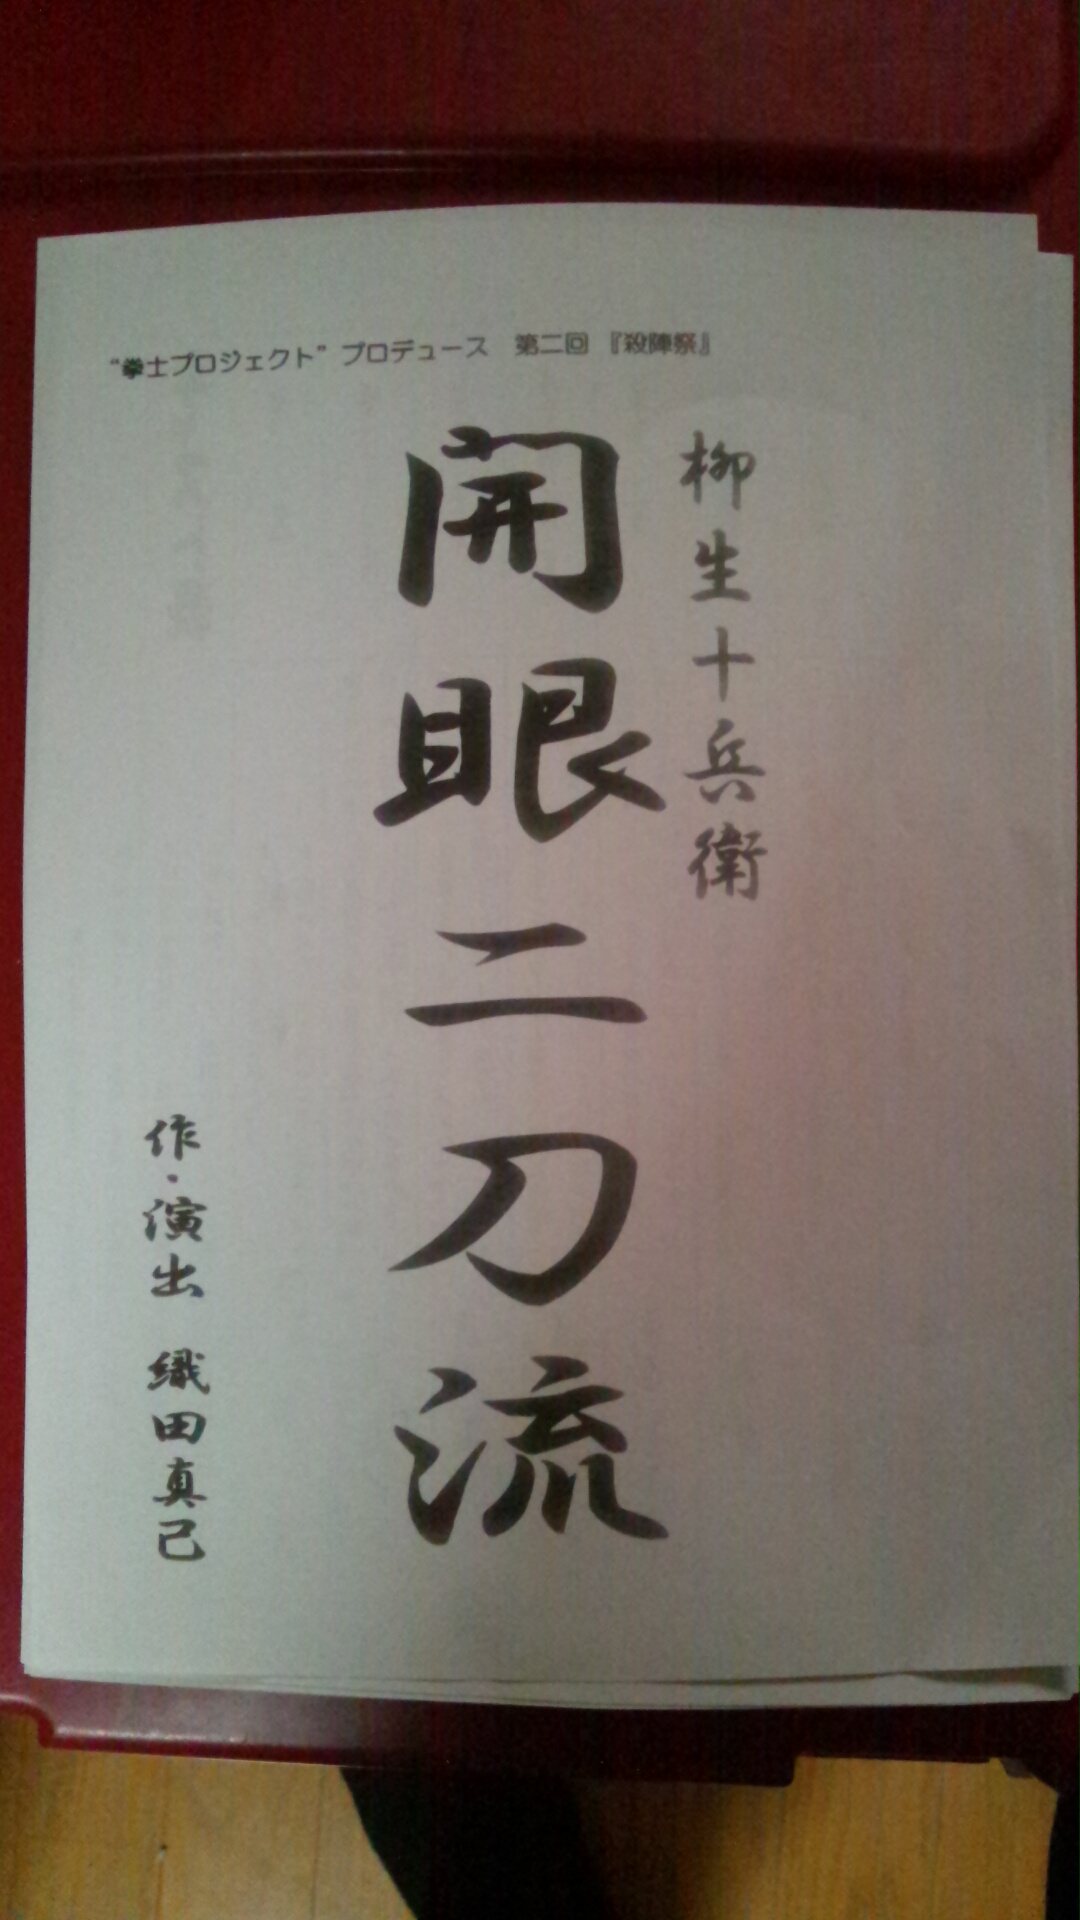 “拳士プロジェクト”プロデュース　第二回『殺陣祭』
柳生十兵衛
開眼二刀流
作・演出　織田真己